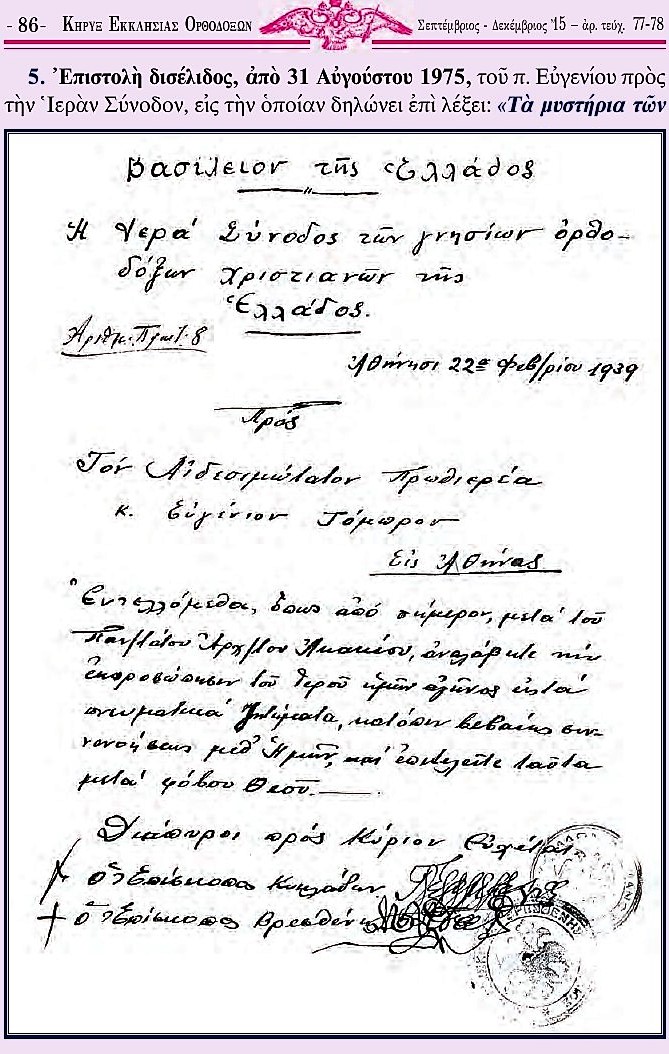 - 86- ΚΗΡΥΞ ΕΚΚΛΗΣΙΑΣ ΟΡΘΟΔΟΞΩΝ
Σεπτέμβριος - Δεκέμβριος '15 – ἀρ. τεύχ. 77-78
5. Ἐπιστολὴ δισέλιδος, ἀπὸ 31 Αὐγούστου 1975, τοῦ π. Εὐγενίου πρὸς
τὴν Ἱερὰν Σύνοδον, εἰς τὴν ὁποίαν δηλώνει ἐπὶ λέξει: «Τὰ μυστήρια τῶν
Βασίλειον τῆς Ἑλλάδος
Ἡ Ἱερά Σύνοδος τῶν γνησίων ὀρθο-
δόξων χριστιανῶν τῆς
Ἑλλάδος.
Ἀριθμ. Πρωτ. 8
Ἀθήνησι 22ᾳ Φεβ/ρίου 1939
Πρός
Τόν Αἰδεσιμώτατον Πρωθιερέα
κ. Εὐγένιον Τόμπρον
Εἰς Ἀθήνας
Ἐντελλόμεθα, ὅπως ἀπό σήμερον, μετά τοῦ
Ἀκακίου, ἀναλάβητε τήν
ἐκπροσώπησιν τοῦ ἱεροῦ ἡμῶν ἀγῶνος εἰς τά
πνευματικά ζητήματα, κατόπιν βεβαίως συν-
εννοήσεως μεθ' Ἡμῶν, καί ἐπιτελεῖτε ταῦτα
μετά φόβου Θεοῦ.
Διάπυροι πρός Κύριον Εὐχέται
ὁ Ἐπίσκοπος Κυκλάδων
ὁ Ἐπίσκοπος Βρεσθένης